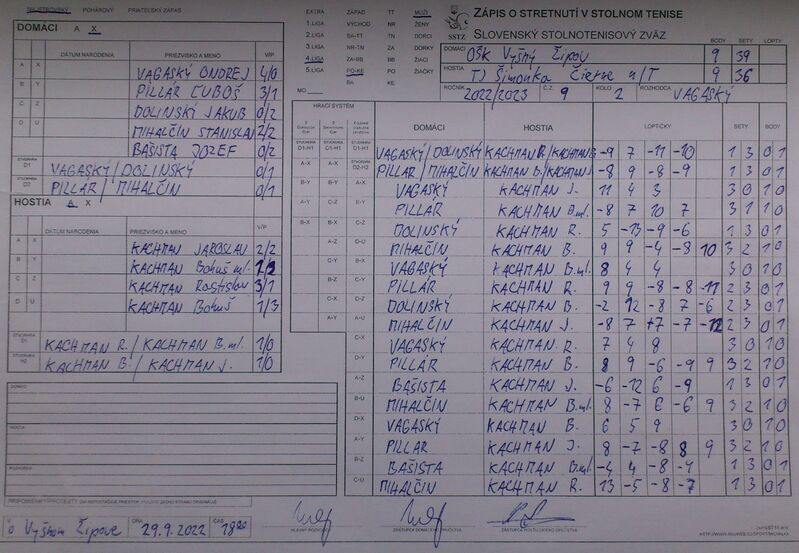 MAJSTROVSKÝ POHÁROVÝ PRIATEĽSKÝ ZÁPAS
DOMÁCI A X
DÁTUM NARODENIA PRIEZVISKO A MENO V/P
A X VAGASKÝ ONDREJ 4/0
B Y PILLÁR ĽUBOŠ 3/1
C Z DOLINSKÝ JAKUB 0/2
D U MIHALČÍN STANISLAV 2/2
BAŠISTA JOZEF 0/2
ŠTVORHRA D1 VAGASKÝ/DOLINSKÝ 0/1
ŠTVORHRA D2 PILLÁR/MIHALČÍN 0/1
HOSTIA A X
DÁTUM NARODENIA PRIEZVISKO A MENO V/P
A X KACHMAN JAROSLAV 2/2
B Y KACHMAN Bohuš ml.
C Z KACHMAN Rastislav 3/1
D U KACHMAN Bohuš 1/3
ŠTVORHRA KACHMAN R./KACHMAN B.ml. 1/0
ŠTVORHRA H2 KACHMAN B./KACHMAN J. 1/0
DOMÁCI
HOSTIA
ROZHODCA
PRIPOMIENKY (PROTESTY)
V Vyšnom Žipove DŇA 29.9.2022 ČAS 18:00
EXTRA ZÁPAD TT MUŽI
1.LIGA VÝCHOD NR ŽENY
2.LIGA BA-TT TN DORCI
3.LIGA NR-TN ZA DORKY
4.LIGA ZA-BB BB ŽIACI
5.LIGA PO-KE PO ŽIAČKY
BA KE
MO
SSTZ
ZÁPIS O STRETNUTÍ V STOLNOM TENISE
SLOVENSKÝ STOLNOTENISOVÝ ZVÄZ
BODY SETY LOPTY
DOMÁCI OŠK Vyšný Žipov 9 39
HOSTIA TJ Šimonka Čierne n/T 9 36
ROČNÍK 2022/2023 Č.Z. 9 KOLO 2 ROZHODCA VAGASKÝ
HRACÍ SYSTÉM DOMÁCI HOSTIA LOPTIČKY SETY BODY
VAGASKÝ/DOLINSKÝ KACHMAN R./KACHMAN B. -9 7 -11 -10 1 3 0 1
PILLÁR/MIHALČÍN KACHMAN B./KACHMAN J. -8 9 -8 -9 1 3 0 1
VAGASKÝ KACHMAN J. 11 4 3 3 0 1 0
PILLÁR KACHMAN B.ml. -8 7 10 7 3 1 1 0
DOLINSKÝ KACHMAN R. 5 -13 -9 -6 1 3 0 1
MIHALČÍN KACHMAN B. 9 9 -4 -8 10 3 2 1 0
VAGASKÝ KACHMAN B.ml. 8 4 4 3 0 1 0
PILLÁR KACHMAN R. 9 9 -8 -8 -11 2 3 0 1
DOLINSKÝ KACHMAN B. -2 12 -8 7 -6 2 3 0 1
MIHALČÍN KACHMAN J. -8 7 7 -7 -12 2 3 0 1
VAGASKÝ KACHMAN R. 7 4 8 3 0 1 0
PILLÁR KACHMAN B. 8 9 -6 -9 9 3 2 1 0
BAŠISTA KACHMAN J. -6 -12 6 -9 1 3 0 1
MIHALČÍN KACHMAN B.ml. 8 -7 6 -6 9 3 2 1 0
VAGASKÝ KACHMAN B. 6 5 9 3 0 1 0
PILLÁR KACHMAN J. 8 -7 -8 8 9 3 2 1 0
BAŠISTA KACHMAN B.ml. -4 4 -8 -4 1 3 0 1
MIHALČÍN KACHMAN R. 13 -5 -8 -7 1 3 0 1
HLAVNÝ ROZHODCA ZÁSTUPCA DOMÁCEHO DRUŽSTVA ZÁSTUPCA HOSŤUJÚCEHO DRUŽSTVA